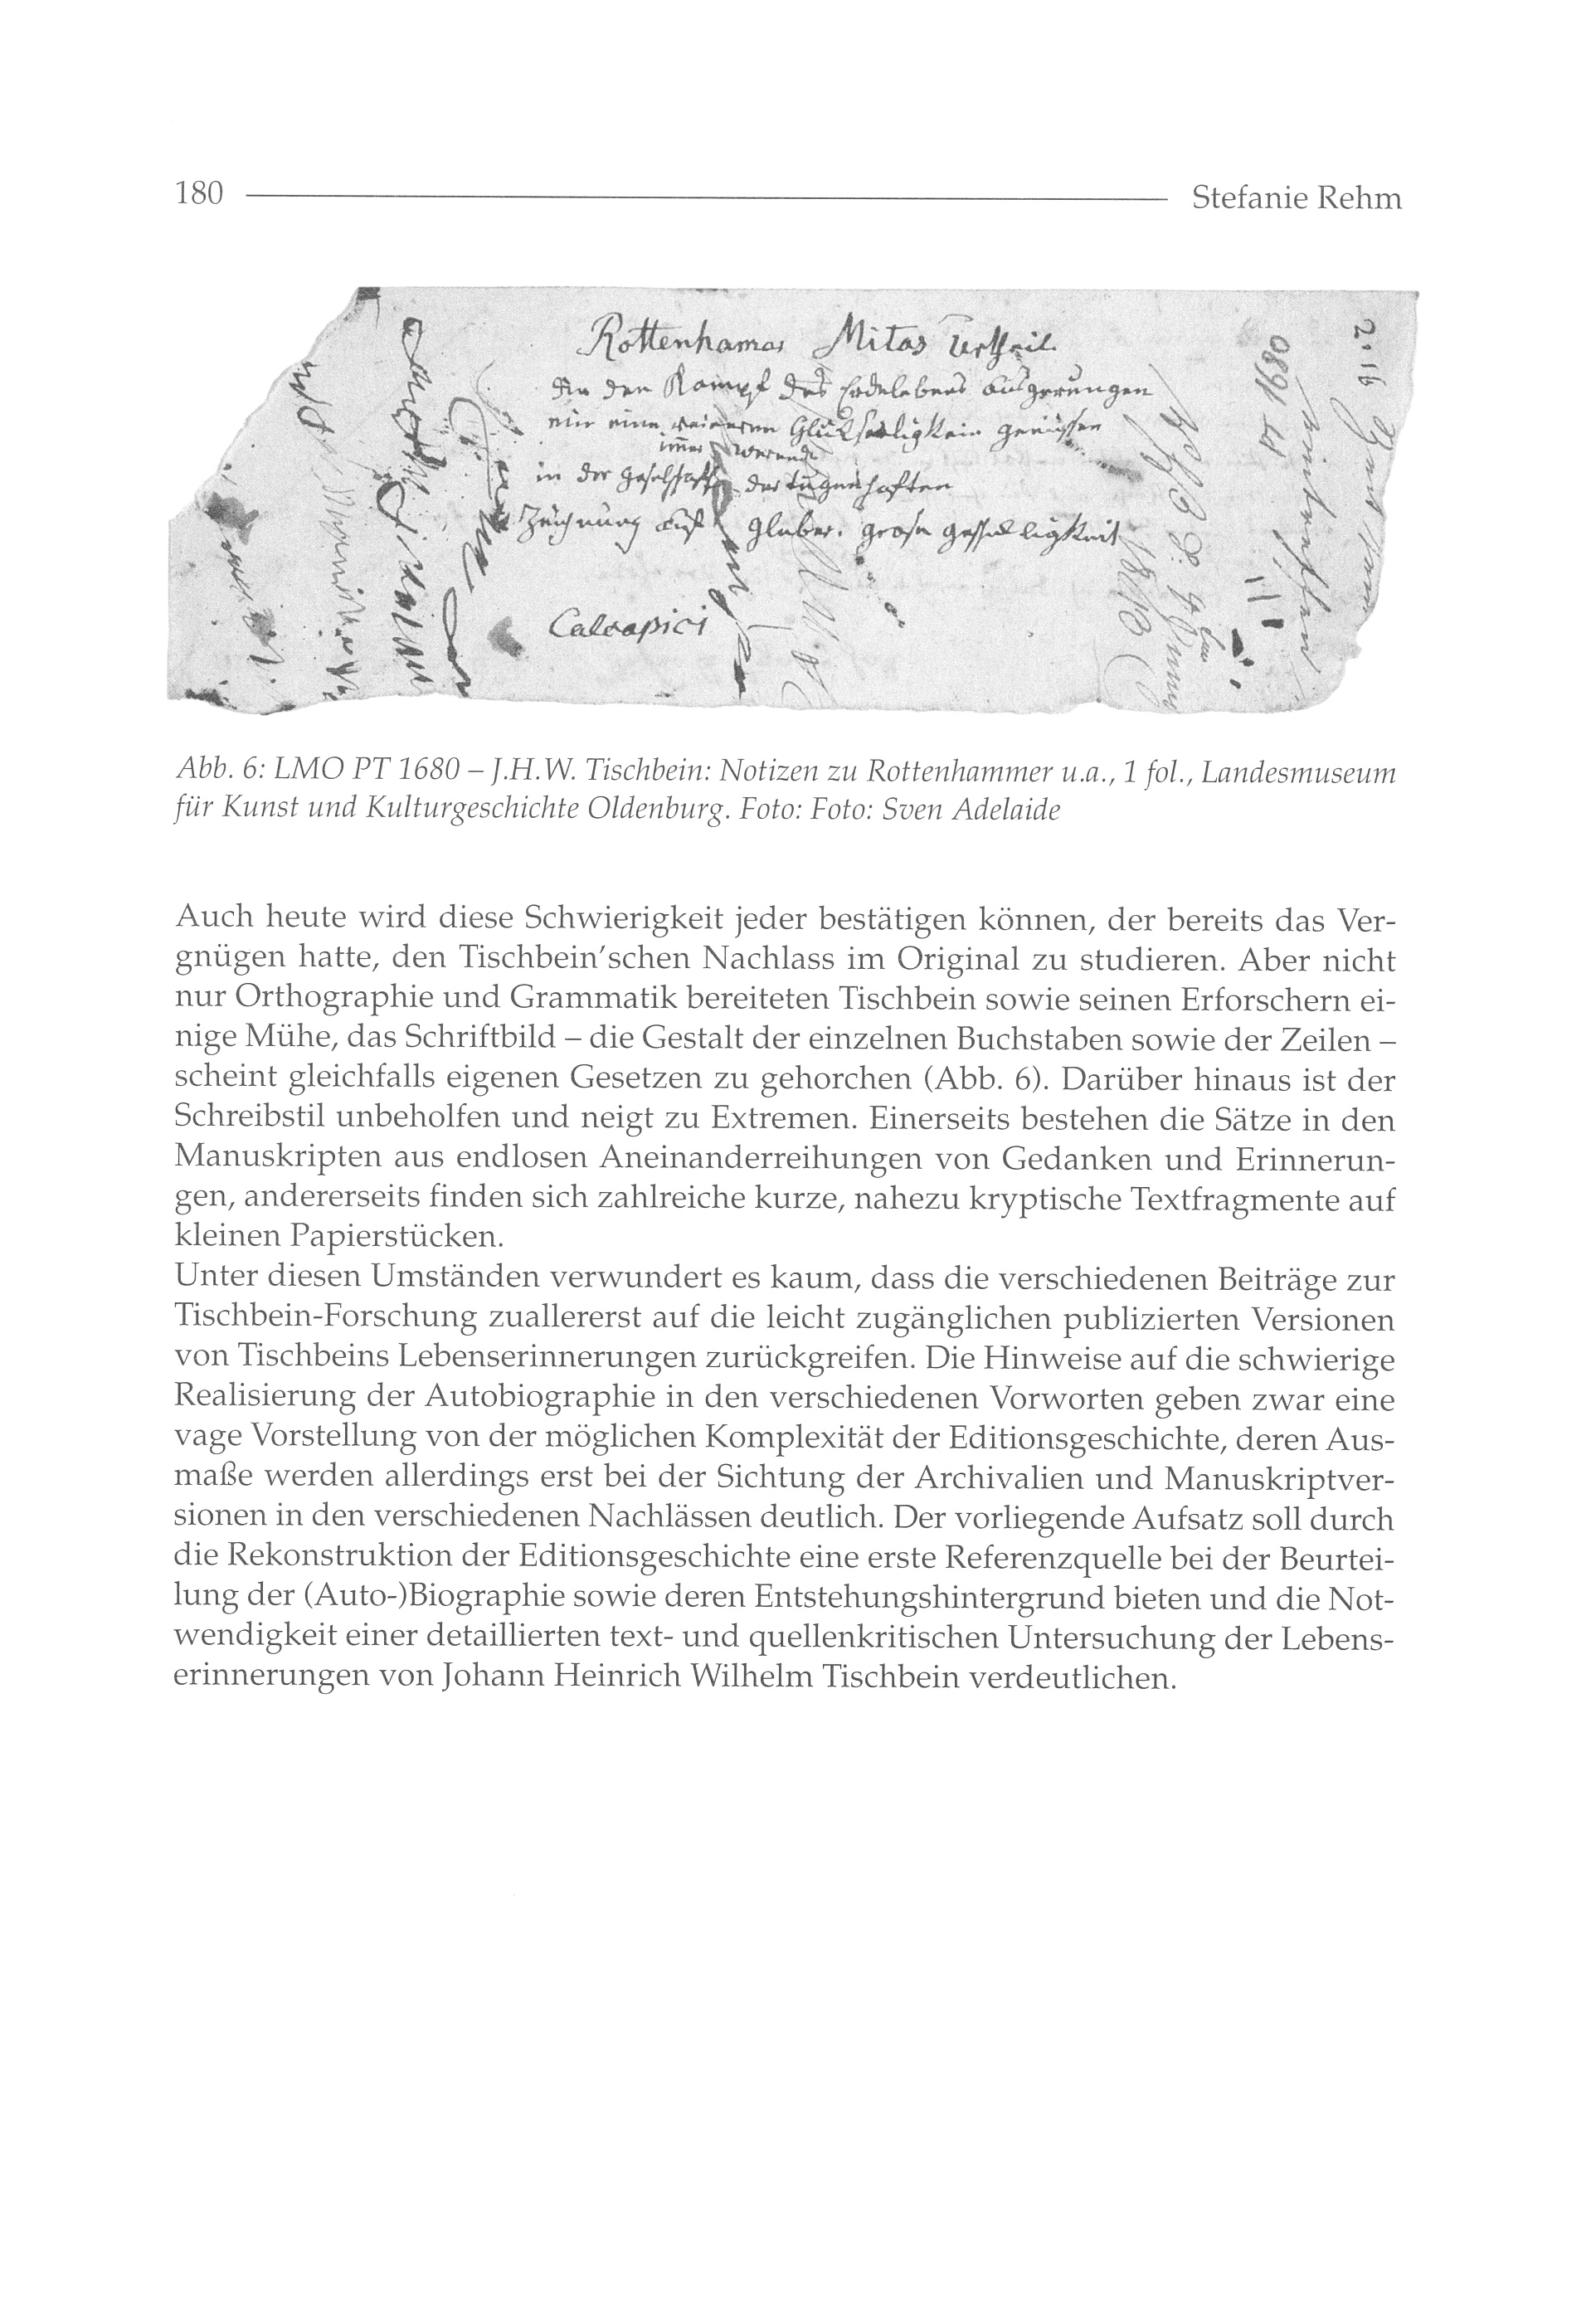 180 Stefanie Rehm
Rottenhamas Mitas Urtheil
den Kampf des Erdelebens ausgerungen
eine Glückseeligkein geniessen
imer werende
in der geselschaft der tugenhaften
Zeichnung auf glaber. grose gefselligkeit
Caleapici
PT 1680
eintreffen
2.16
Abb. 6: LMO PT 1680 – J.H.W. Tischbein: Notizen zu Rottenhammer u.a., 1 fol., Landesmuseum
für Kunst und Kulturgeschichte Oldenburg. Foto: Foto: Sven Adelaide
Auch heute wird diese Schwierigkeit jeder bestätigen können, der bereits das Ver-
gnügen hatte, den Tischbein’schen Nachlass im Original zu studieren. Aber nicht
nur Orthographie und Grammatik bereiteten Tischbein sowie seinen Erforschern ei-
nige Mühe, das Schriftbild – die Gestalt der einzelnen Buchstaben sowie der Zeilen –
scheint gleichfalls eigenen Gesetzen zu gehorchen (Abb. 6). Darüber hinaus ist der
Schreibstil unbeholfen und neigt zu Extremen. Einerseits bestehen die Sätze in den
Manuskripten aus endlosen Aneinanderreihungen von Gedanken und Erinnerun-
gen, andererseits finden sich zahlreiche kurze, nahezu kryptische Textfragmente auf
kleinen Papierstücken.
Unter diesen Umständen verwundert es kaum, dass die verschiedenen Beiträge zur
Tischbein-Forschung zuallererst auf die leicht zugänglichen publizierten Versionen
von Tischbeins Lebenserinnerungen zurückgreifen. Die Hinweise auf die schwierige
Realisierung der Autobiographie in den verschiedenen Vorworten geben zwar eine
vage Vorstellung von der möglichen Komplexität der Editionsgeschichte, deren Aus-
maße werden allerdings erst bei der Sichtung der Archivalien und Manuskriptver-
sionen in den verschiedenen Nachlässen deutlich. Der vorliegende Aufsatz soll durch
die Rekonstruktion der Editionsgeschichte eine erste Referenzquelle bei der Beurtei-
lung der (Auto-)Biographie sowie deren Entstehungshintergrund bieten und die Not-
wendigkeit einer detaillierten text- und quellenkritischen Untersuchung der Lebens-
erinnerungen von Johann Heinrich Wilhelm Tischbein verdeutlichen.